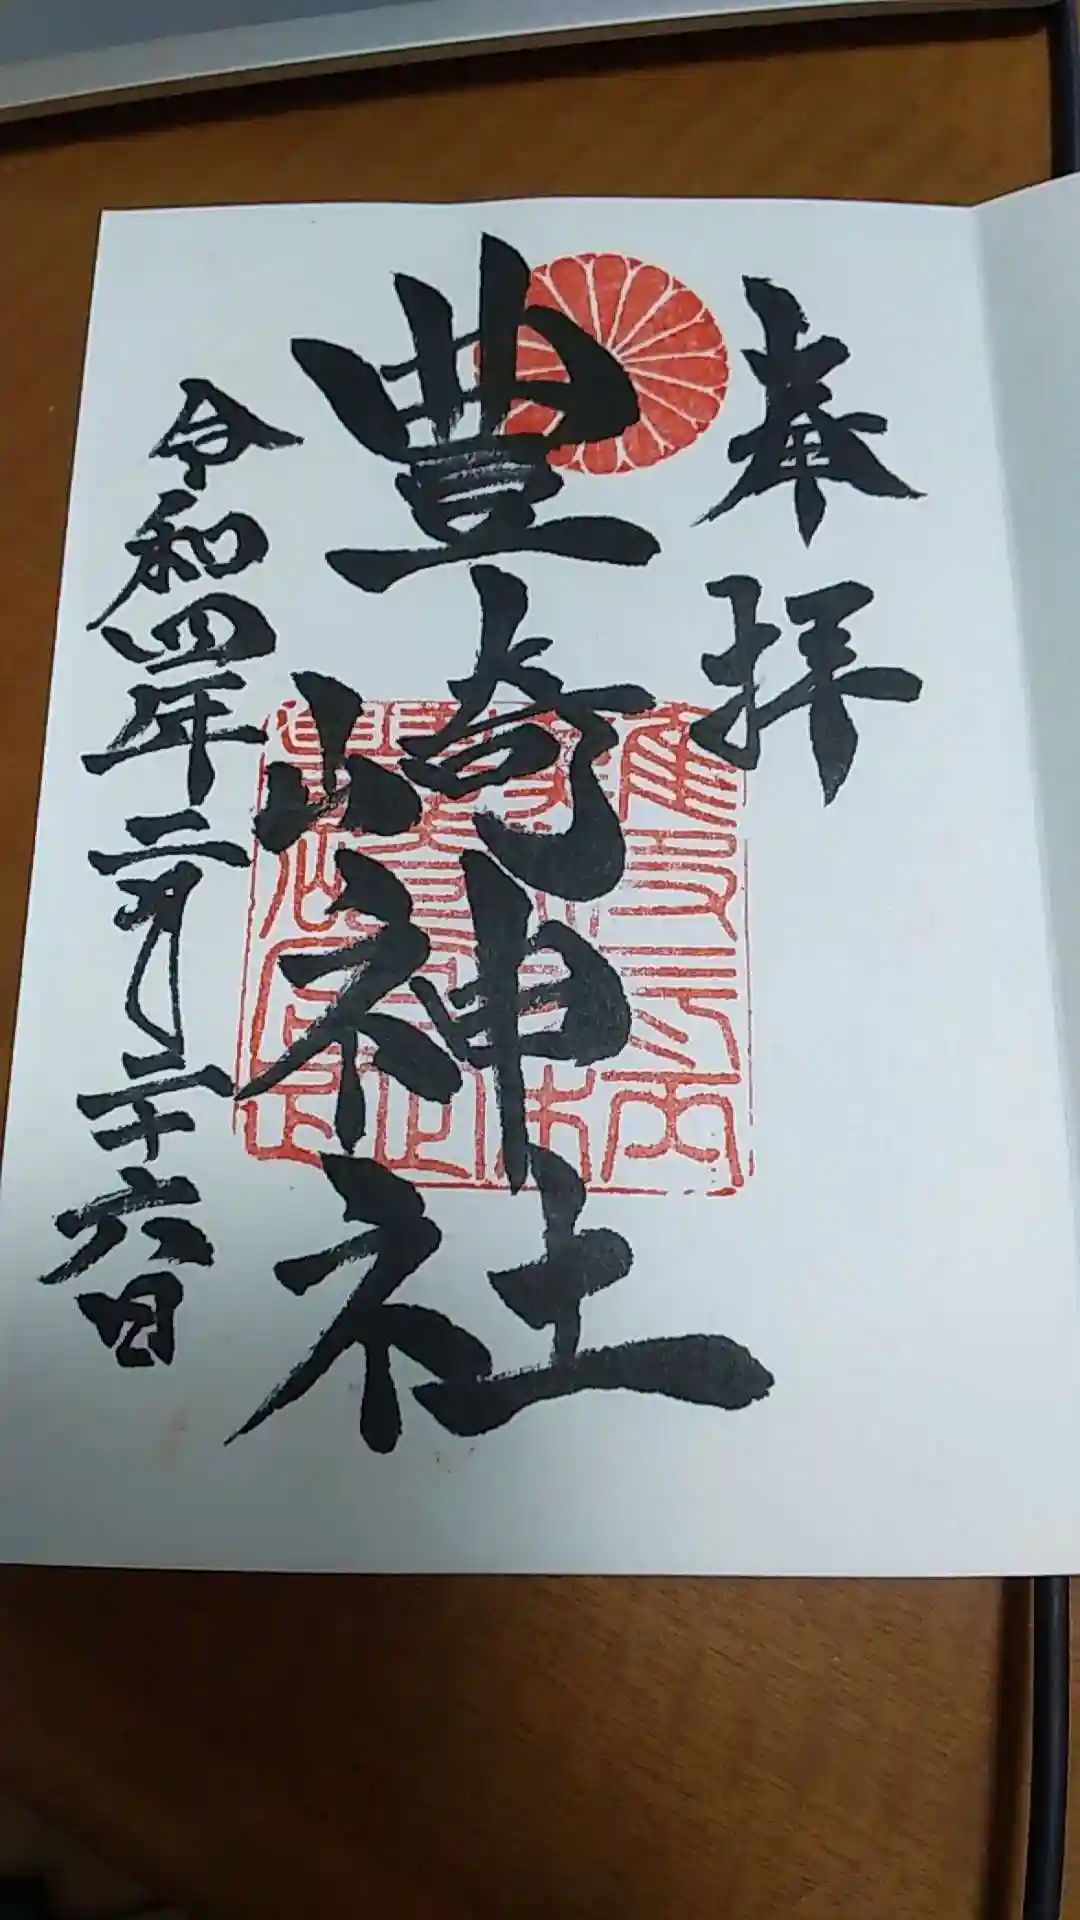 奉拝
豊崎神社
令和四年二月二十六日